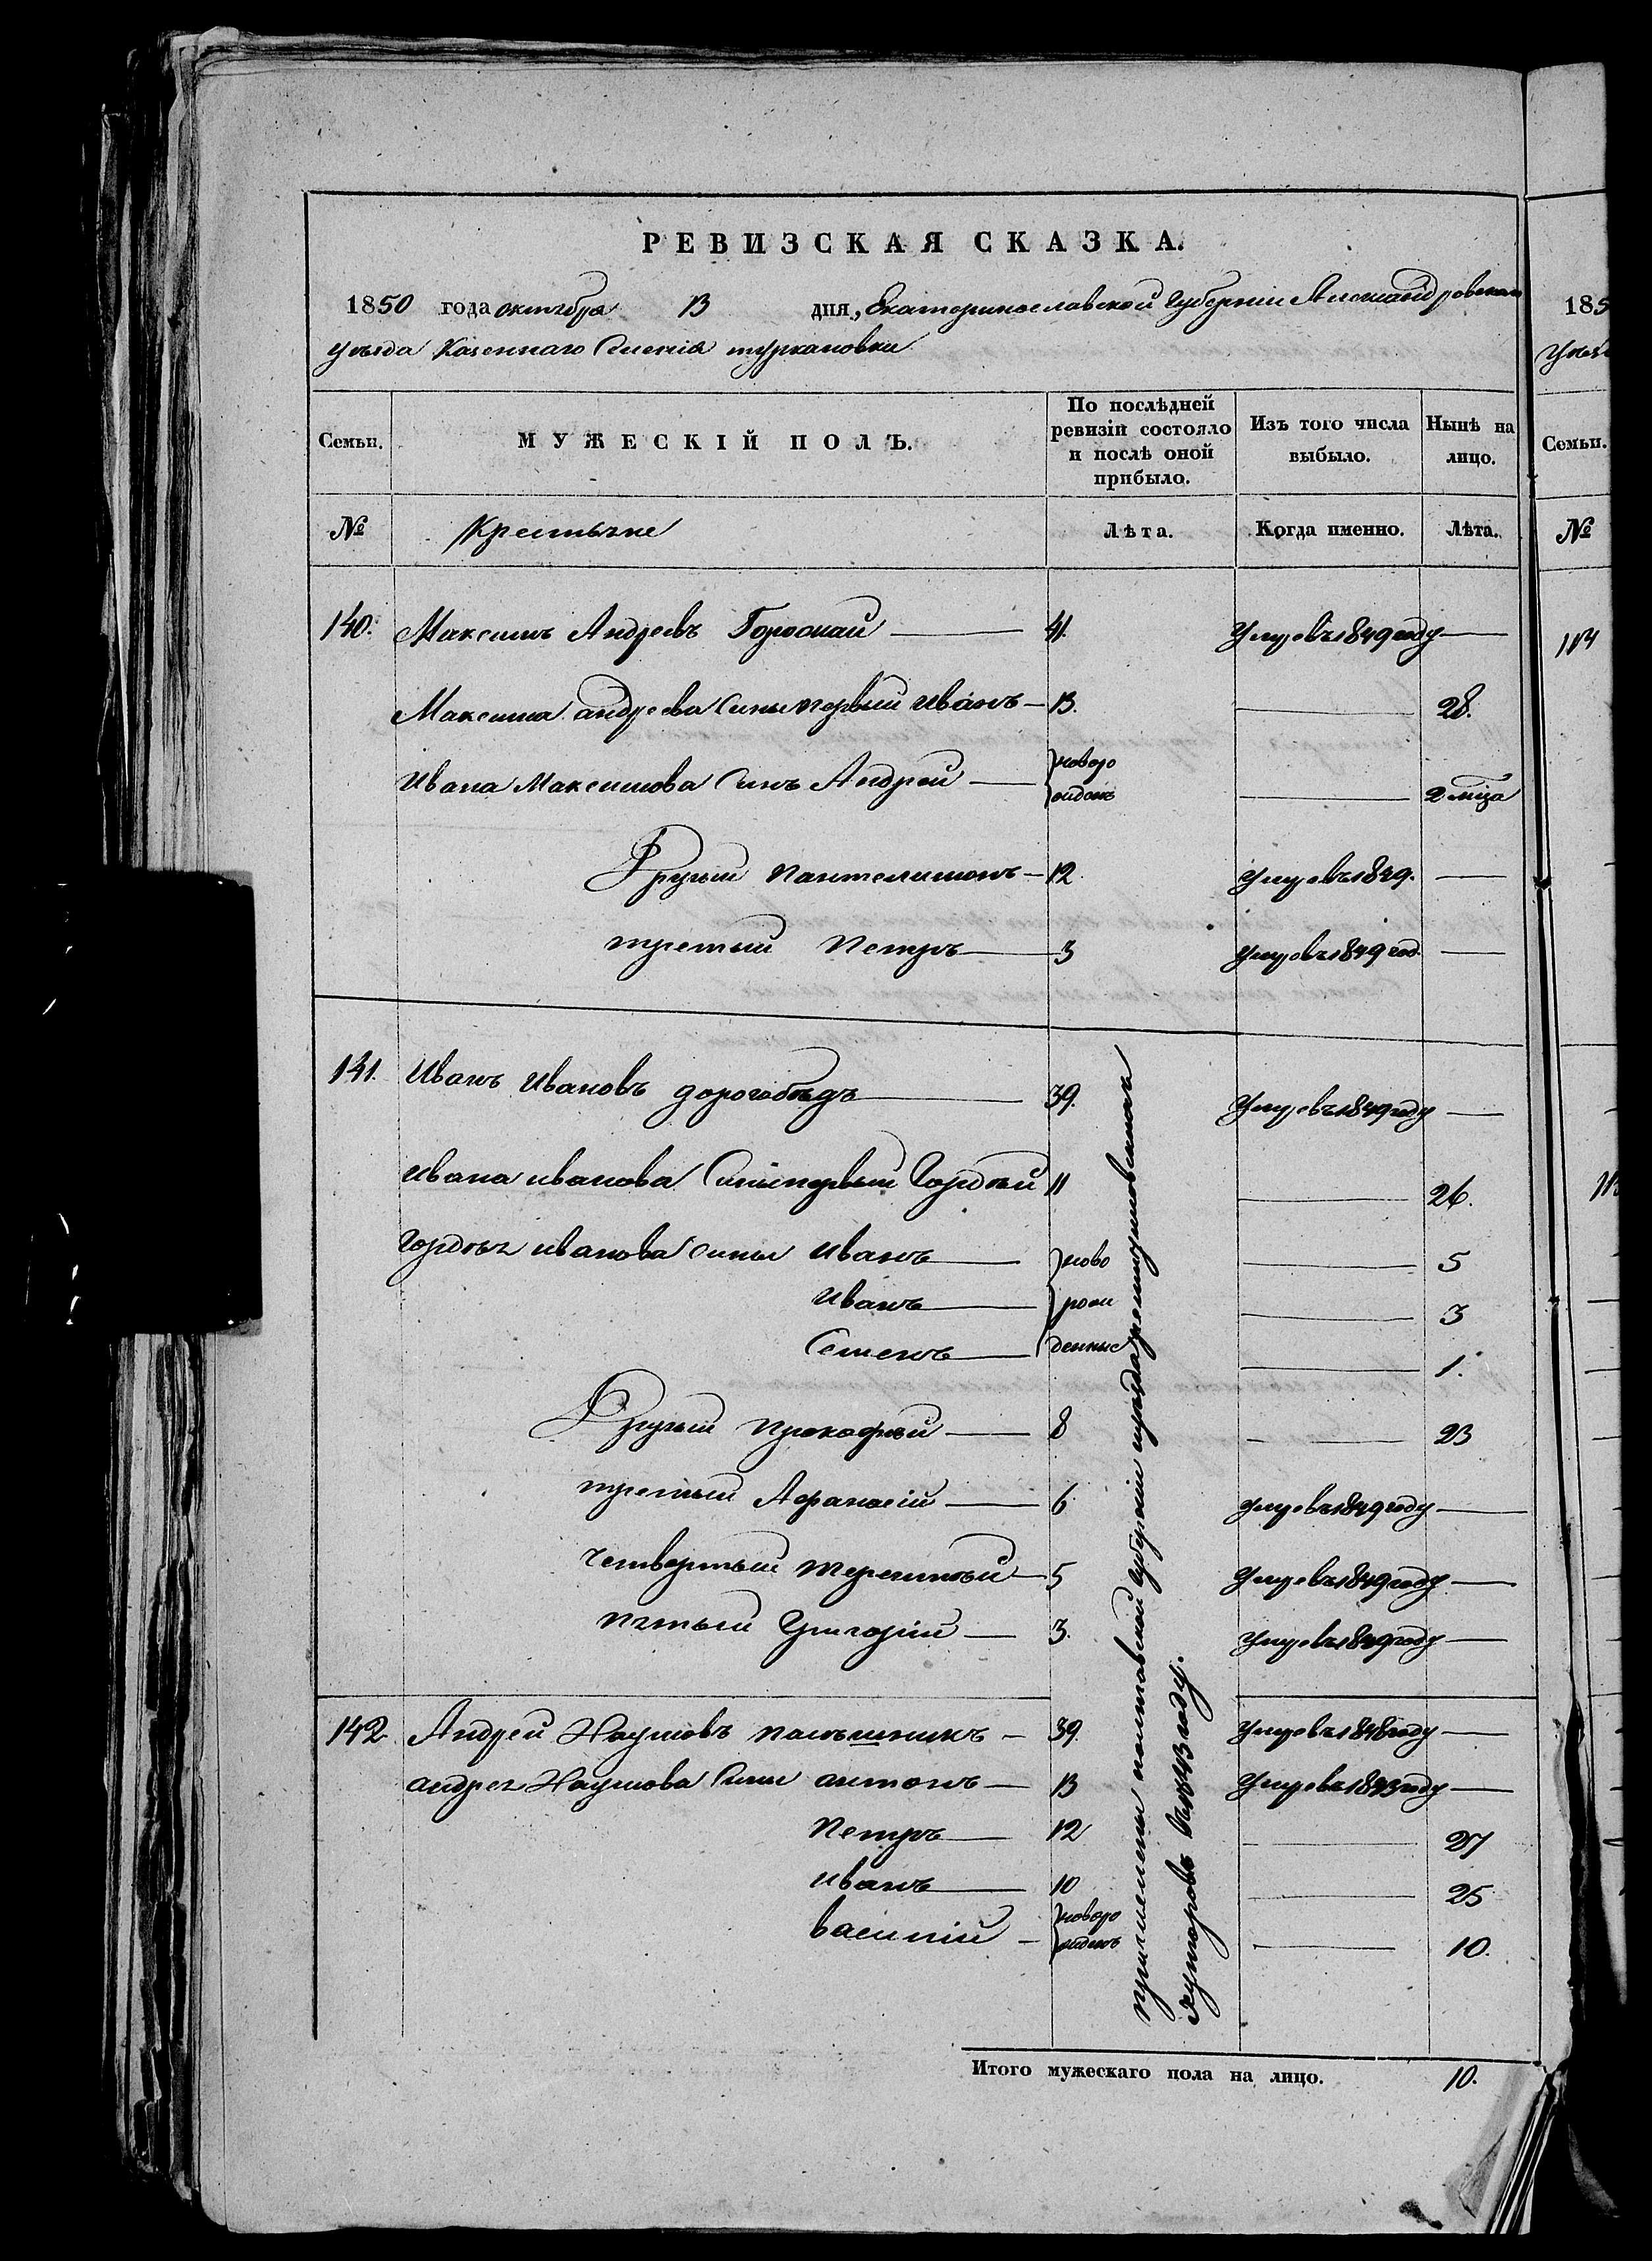 РЕВИЗСКАЯ СКАЗКА.
1850 года октября 13 дня, Екатеринославской Губерніи Александровскаго
уѣзда Казеннаго Селенія туркановки
Семьи. МУЖЕСКІЙ ПОЛЪ. По послѣдней ревизіи состояло и послѣ оной прибыло. Изъ того числа выбыло. Нынѣ на лицо.
№ Крестьяне Лѣта. Когда именно. Лѣта.
140. Максимъ Андреевъ 41. Умре въ 1849 году
Максима андреева Сыны первый Иванъ 13. 28.
Ивана Максимова Сынъ Андрей новорожденъ 2 мѣца
Другий Пантелимонъ 12. Умре въ 1849.
третий Петръ 3 Умре въ 1849 год.
141. Иванъ Ивановъ дорогобѣдъ 39. Умре въ 1849 году
Ивана иванова Сыны первый Гордѣй 11 26.
Гордѣя иванова сыны Иванъ ново 5
Иванъ рож 3
Семенъ денные 1.
Другий Прокофий 8 23
третий Афанасій 6 Умре въ 1849 году
четвертый терентий 5 Умре въ 1849 году
пятый Григорій 3. Умре въ 1849 году
причислены полтавской Губерніи
хуторовъ въ 1843 году.
142 Андрей Наумовъ 39. Умре въ 1848 году
андрея Наумова Сыны антонъ 13 Умре въ 1843 году
Петръ 12 27
Иванъ 10 25
василій новорожденъ 10.
Итого мужескаго пола на лицо. 10.
185
Уѣз
Семьи.
№